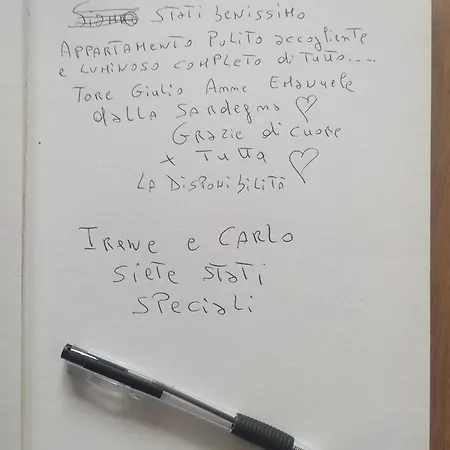 stati benissimo
Appartamento pulito accogliente
e luminoso completo di tutto....
Tore Giulio Amme Emanuele
dalla Sardegna ♡
Grazie di cuore
x tutta ♡
la disponibilità
Irene e Carlo
siete stati
speciali